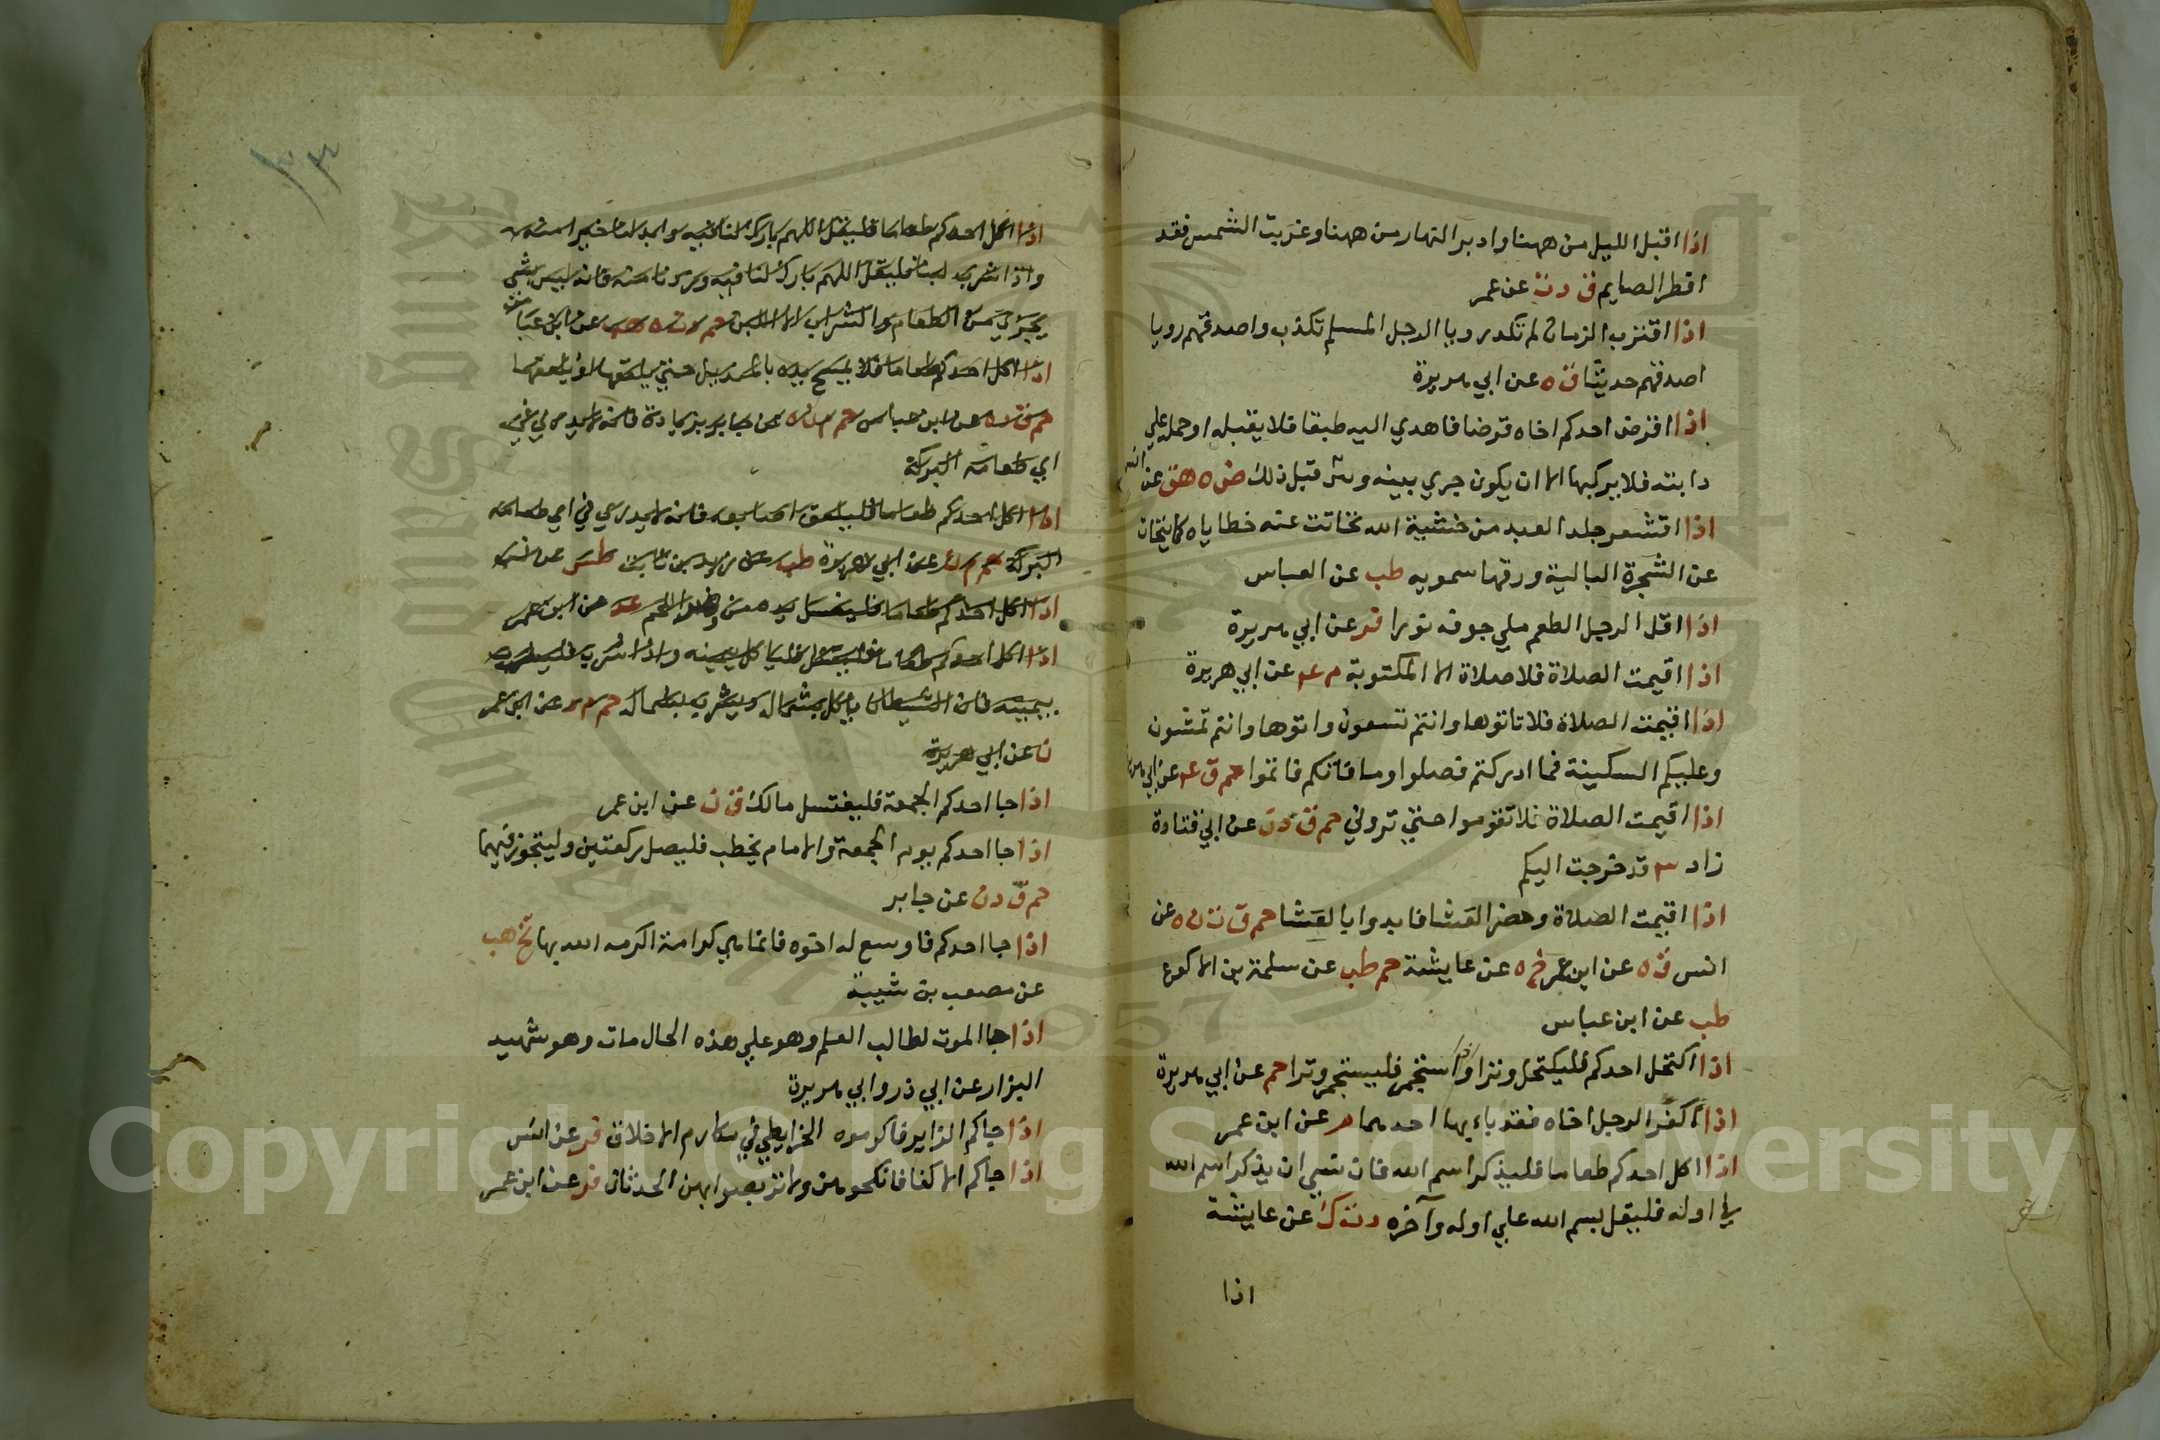 اذا اقبل الليل من ههنا وادبر النهار من ههنا وغربت الشمس فقد
افطر الصايم ق د ت عن عمر
اذا اقترب الزمان لم تكد رويا الرجل المسلم تكذب واصدقهم رويا
اصدقهم حديثا ق ه عن ابي هريرة
اذا اقرض احدكم اخاه قرضا فاهدي اليه طبقا فلا يقبله او حمله علي
دابته فلا يركبها الا ان يكون جري بينه و قبل ذلك ص ه هق عن انس
اذا اقشعر جلد العبد من خشية الله تحاتت عنه خطاياه كما يتحات
عن الشجرة البالية ورقها سمويه طب عن العباس
اذا اقل الرجل الطعم ملي جوفه نورا فر عن ابي هريرة
اذا اقيمت الصلاة فلا صلاة الا المكتوبة م عه عن ابي هريرة
اذا اقيمت الصلاة فلا تاتوها وانتم تسعون واتوها وانتم تمشون
وعليكم السكينة فما ادركتم فصلوا وما فاتكم فاتموا حم ق عه عن ابي هريرة
اذا اقيمت الصلاة فلا تقوموا حتي تروني حم ق د ن عن ابي قتادة
زاد ٣ قد خرجت اليكم
اذا اقيمت الصلاة وحضر العشا فابدوا بالعشا حم ق ت ن ه عن
انس ق ه عن ابن عمر خ ه عن عايشة حم طب عن سلمة بن الاكوع
طب عن ابن عباس
اذا اكتحل احدكم فليكتحل وترا واذا استجمر فليستجمر وترا حم عن ابي هريرة
اذا اكفر الرجل اخاه فقد باء بها احدهما م عن ابن عمر
اذا اكل احدكم طعاما فليذكر اسم الله فان نسي ان يذكر اسم الله
في اوله فليقل بسم الله علي اوله وآخره د ت ك عن عايشة
اذا
٣٢
اذا اكل احدكم طعاما فليقل اللهم بارك لنا فيه وابدلنا خيرا منه
واذا شرب لبنا فليقل اللهم بارك لنا فيه وزدنا منه فانه ليس شي
يجزي من الطعام والشراب الا اللبن حم د ت ه هب عن ابن عباس
اذا اكل احدكم طعاما فلا يمسح يده بالمنديل حتي يلعقها او يلعقها
حم ق د ه عن ابن عباس حم م ن ه عن جابر بزيادة فانه لا يدري في
اي طعامه البركة
اذا اكل احدكم طعاما فليلعق اصابعه فانه لا يدري في اي طعامه
البركة حم م ت عن ابي هريرة طب عن زيد بن ثابت طس عن انس
اذا اكل احدكم طعاما فليغسل يده من وضر اللحم عد عن ابن عمر
اذا اكل احدكم فلياكل بيمينه واذا شرب فليشرب
بيمينه فان الشيطان ياكل بشماله ويشرب بشماله حم م د عن ابن عمر
ن عن ابي هريرة
اذا جا احدكم الجمعة فليغتسل مالك ق ن عن ابن عمر
اذا جا احدكم يوم الجمعة والامام يخطب فليصل ركعتين وليتجوز فيهما
حم ق د ن عن جابر
اذا جا احدكم فاوسع له اخوه فانما هي كرامة اكرمه الله بها تخ هب
عن مصعب بن شيبة
اذا جا الموت لطالب العلم وهو علي هذه الحال مات وهو شهيد
البزار عن ابي ذر وابي هريرة
اذا جاكم الزاير فاكرموه الخرايطي في مكارم الاخلاق فر عن انس
اذا جاكم الاكفا فانكحوهن ولا تربصوا بهن الحدثان فر عن ابن عمر
Copyright © King Saud University
1957